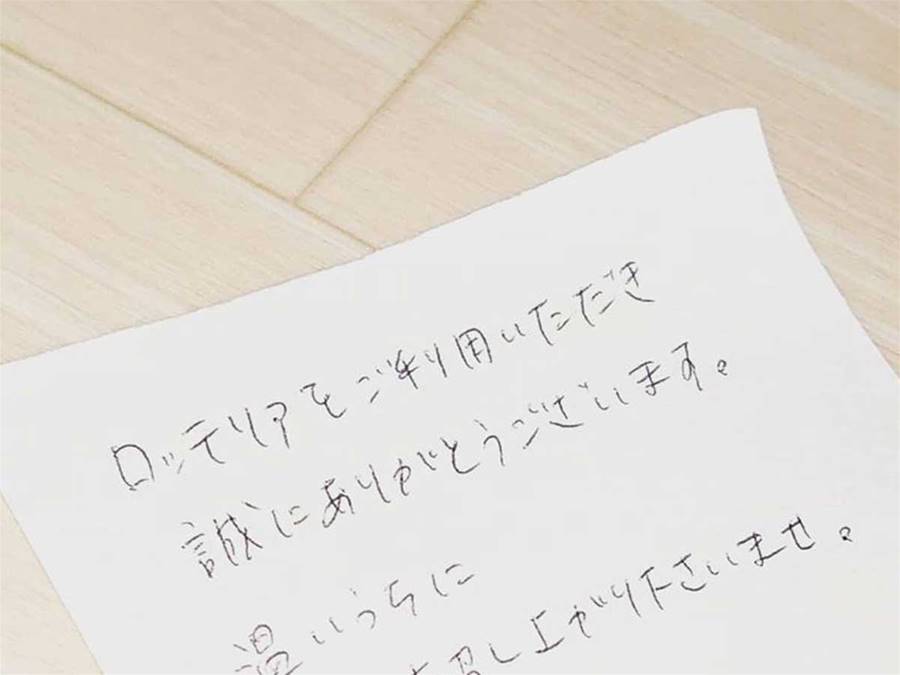 ロッテリアをご利用いただき
誠にありがとうございます。
温いうちに
お召し上がり下さいませ。